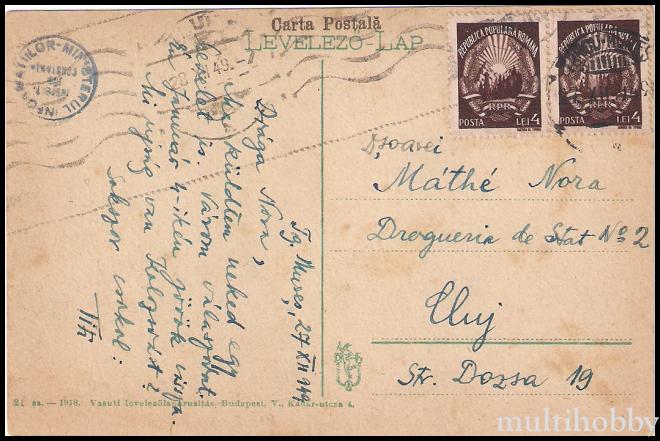 Carta Poștală
LEVELEZŐ-LAP
REPUBLICA POPULARA ROMANA
RPR
POSTA LEI 4
REPUBLICA POPULARA ROMANA
RPR
POSTA LEI 4
INFORMAȚIILOR-MINISTERUL
CONSTANȚA
28 49.-7
Tg. Mureș, 27 XII 949
Drága Nora,
Már küldtem neked egy
levelet is. Várom válaszodat.
Én Január 4-ikén jövök vissza.
Mi ujság van Kolozsvárt?
Sokszor csókol:
Titi
Dșoarei
Máthé Nora
Drogueria de Stat No 2
Cluj
Str. Dozsa 19
21 sz. — 1918. Vasuti levelezőlapárusitás, Budapest, V., Kádár-utcza 4.
multihobby